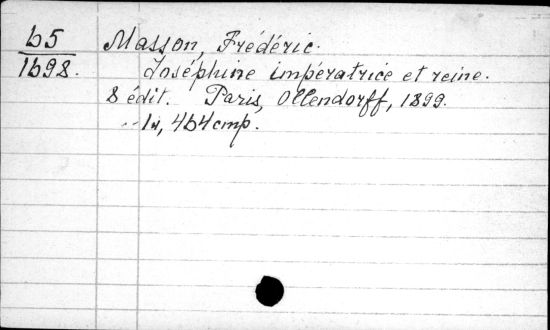 b5
1698.
Masson, Frédéric.
Joséphine impératrice et reine.
8 édit. Paris, Ollendorff, 1899.
464 cmp.